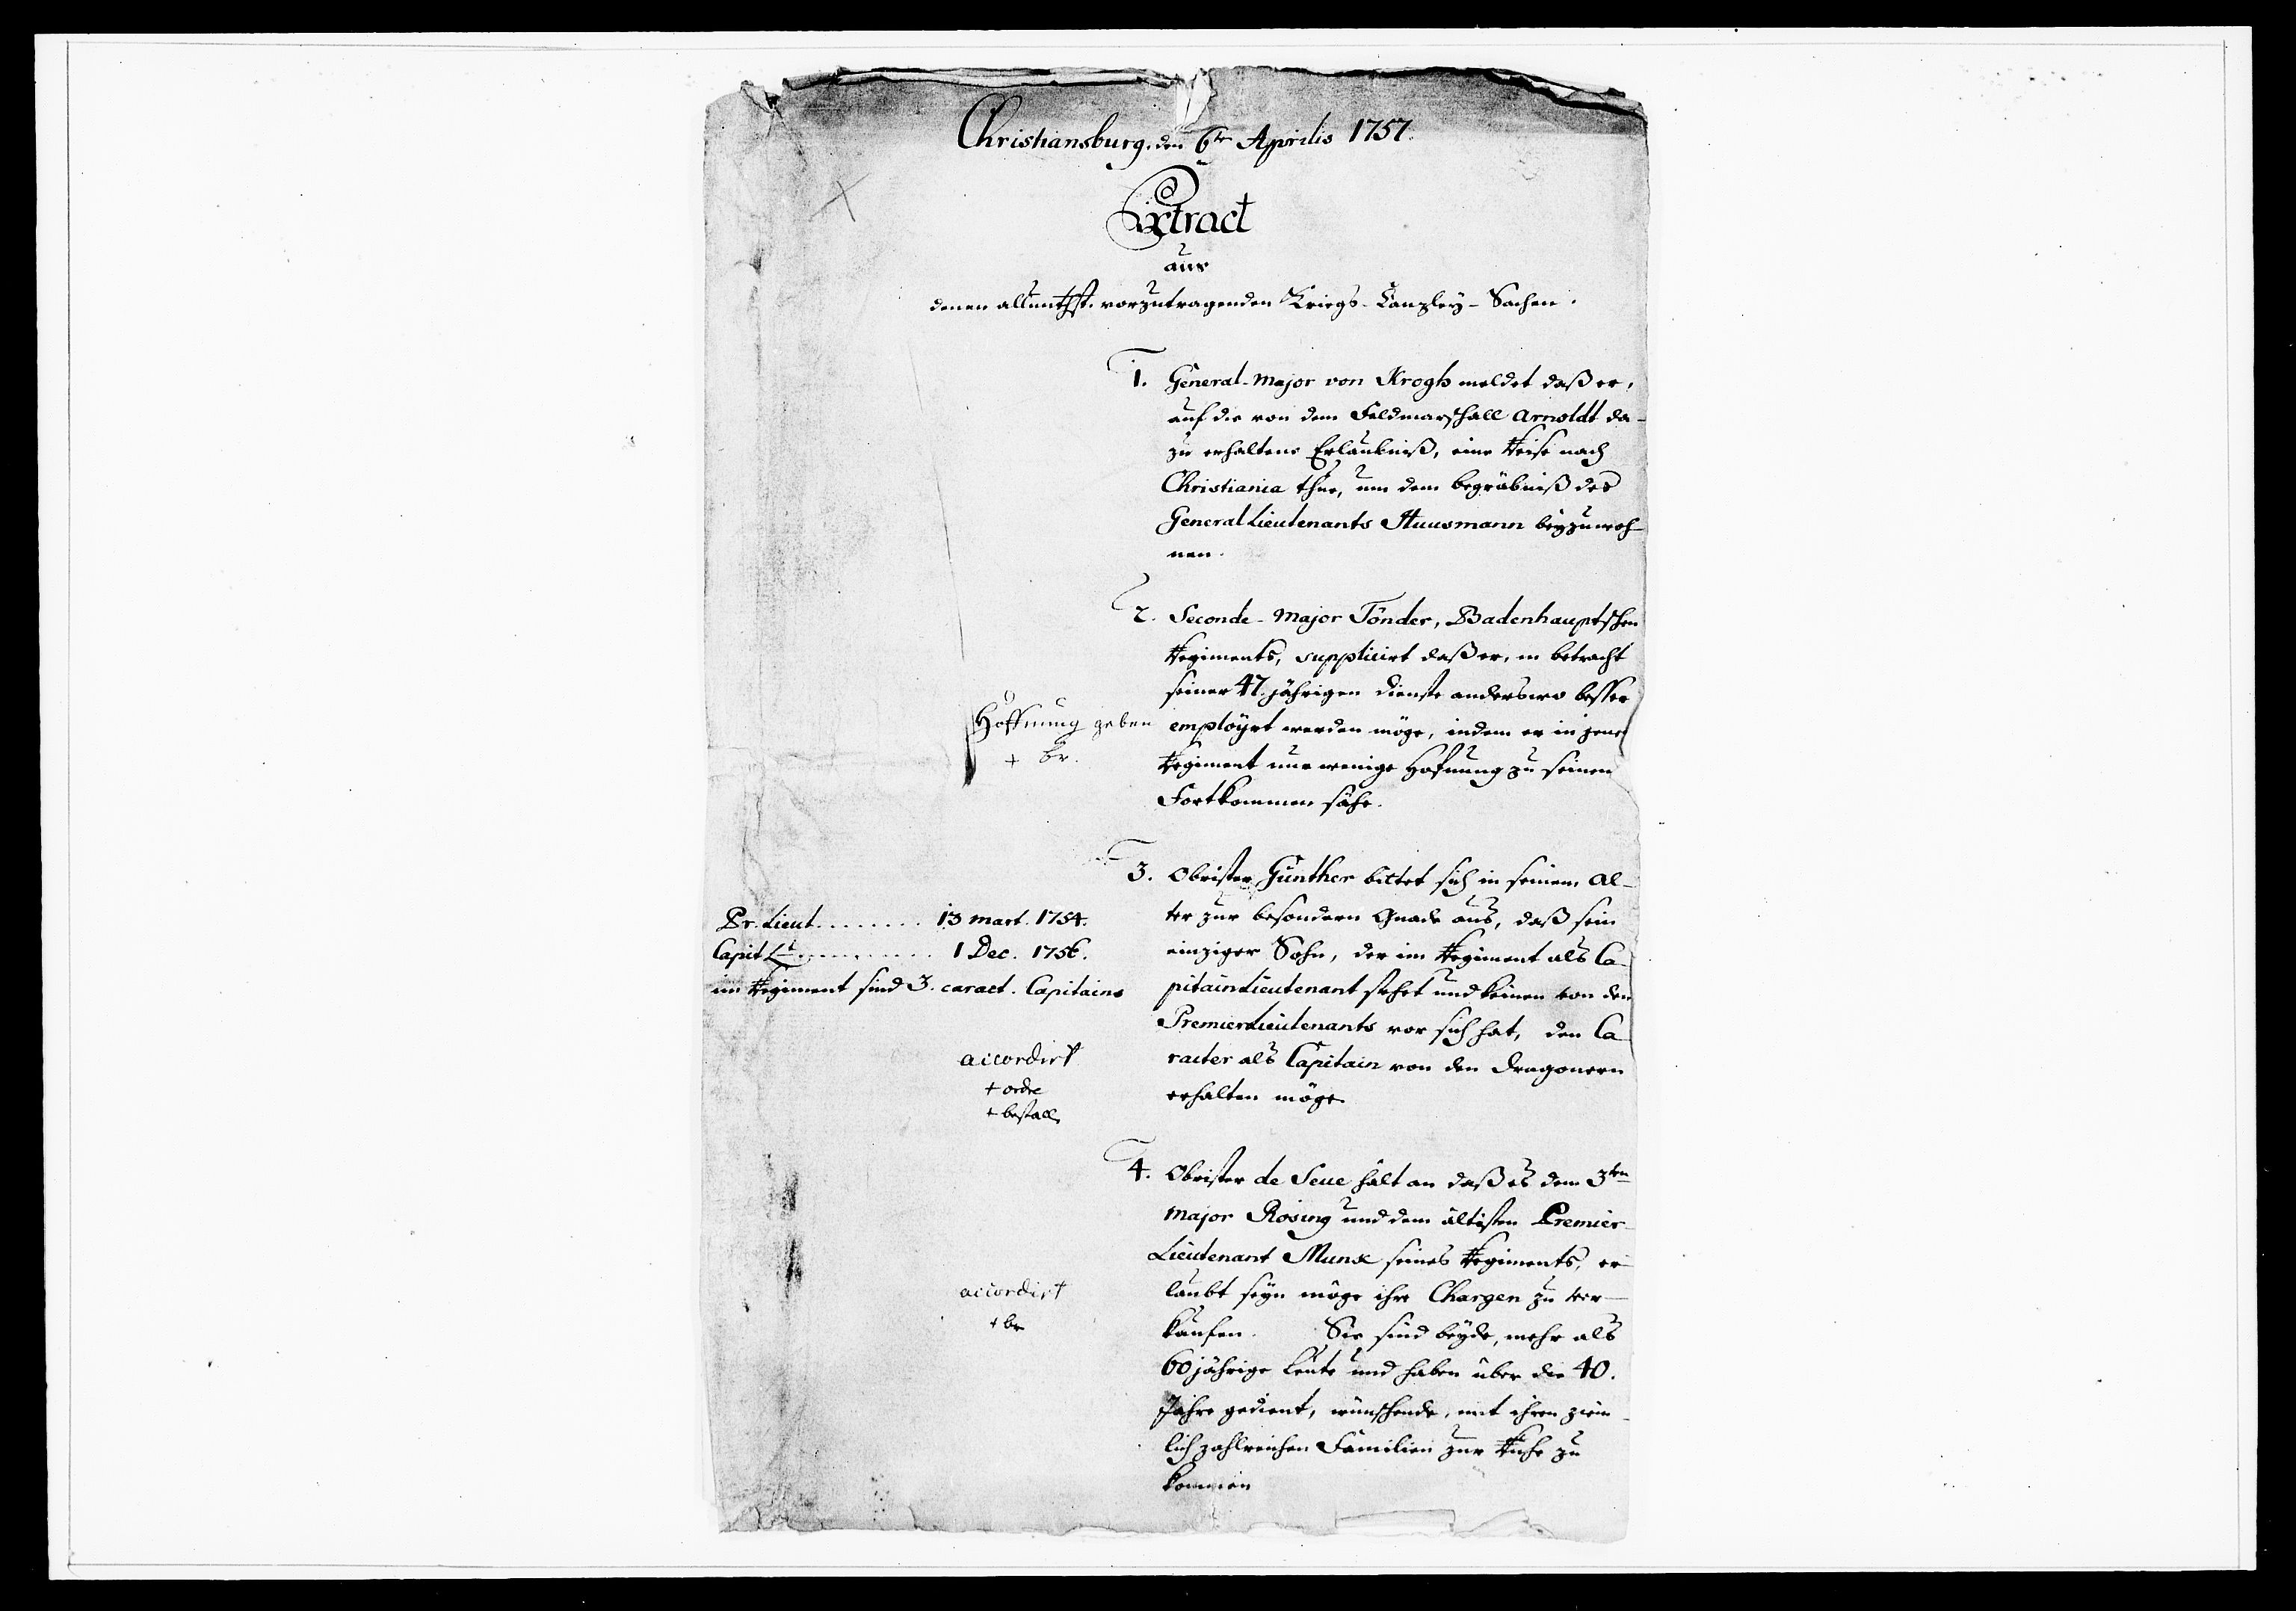 Christiansburg, den 6ten Aprilis 1757.
Extract
aus
denen allunthst. vorzutragenden Kriegs-Canzley-Sachen.
1. General-Major von Krogh meldet daß er,
auf die von dem Feldmarschall Arnoldt da-
zu erhaltene Erlaubniß, eine Reise nach
Christiania thue, um dem begräbniß des
General Lieutenants Huusmann beyzuwoh-
nen.
2. Seconde-Major Tönder, Badenhauptschen
Regiments, supplicirt daß er, in betracht
seiner 47. jährigen Dienste anderswo besser
employrt werden möge, indem er in jenem
Regiment nur wenige Hofnung zu seinem
Fortkommen sähe.
Hoffnung geben
+ br.
3. Obrister Günther bittet sich in seinem Al-
ter zur besondern Gnade aus, daß sein
einziger Sohn, der im Regiment als Ca-
pitainlieutenant stehet und keinen von den
Premierlieutenants vor sich hat, den Ca-
racter als Capitain von den Dragonern
erhalten möge.
Pr. Lieut......... 13 Mart. 1754.
Capit Lt........... 1 Dec. 1756.
im Regiment sind 3. caract. Capitains
accordirt
+ ordre
+ bestall.
4. Obrister de Seue hält an daß es dem 3ten
Major Rosing und dem ältisten Premier-
Lieutenant Munk seines Regiments, er-
laubt seyn möge ihre Chargen zu ver-
kaufen. Sie sind beyde, mehr als
60 jährige Leute und haben über die 40.
Jahre gedient, wünschende, mit ihren ziem-
lich zahlreichen Familien zur Ruhe zu
kommen
accordirt
+ br